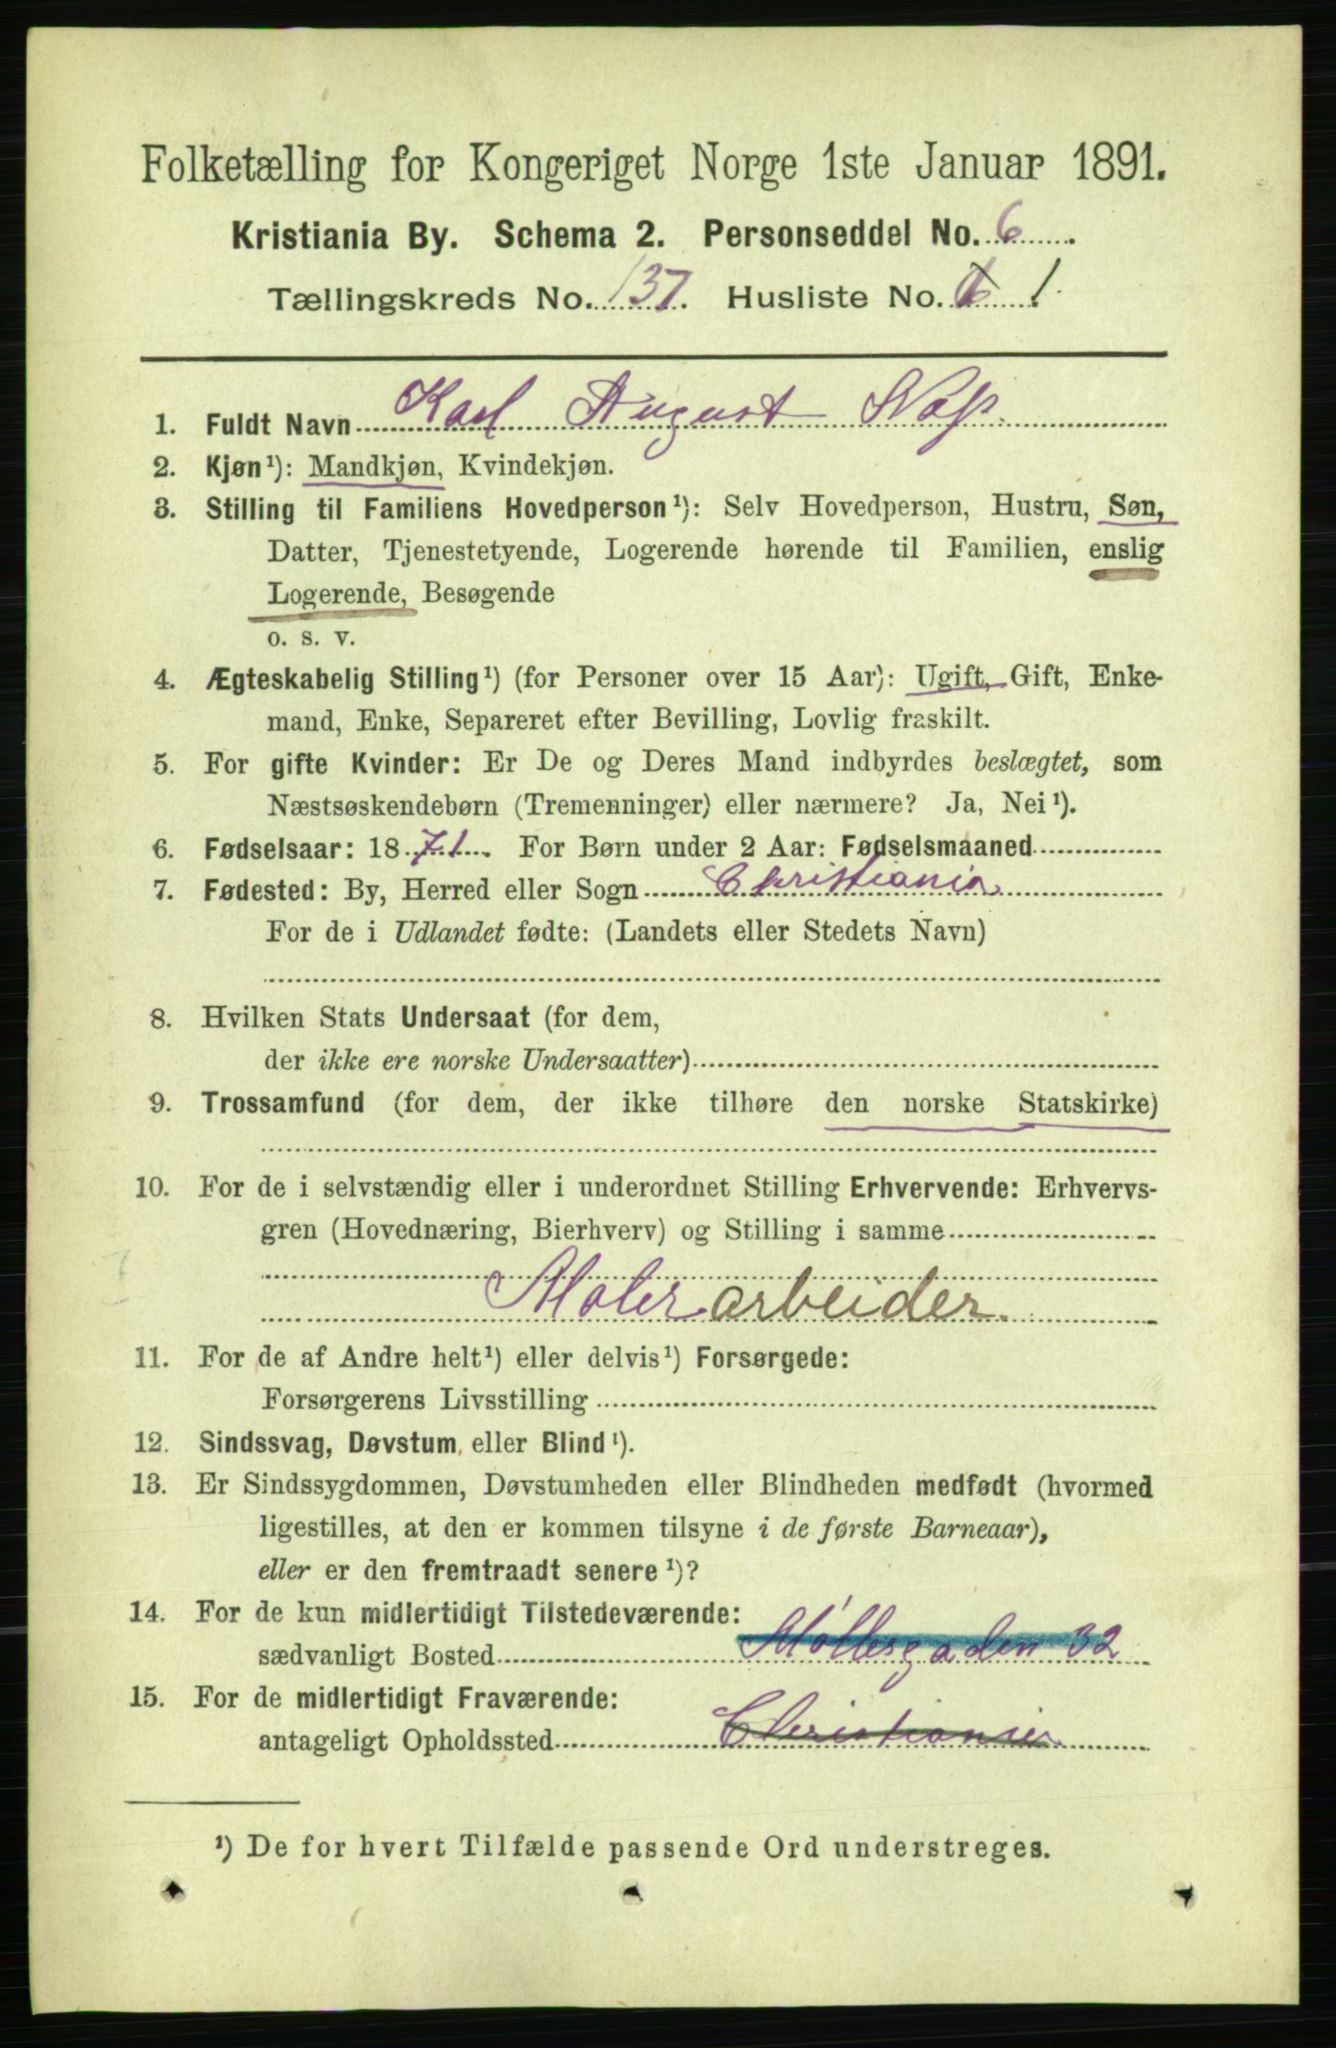 Folketælling for Kongeriget Norge 1ste Januar 1891.
Kristiania By. Schema 2. Personseddel No. 6
Tællingskreds No. 137. Husliste No. 1
1. Fuldt Navn Karl August Nass
2. Kjøn¹): Mandkjøn, Kvindekjøn.
3. Stilling til Familiens Hovedperson¹): Selv Hovedperson, Hustru, Søn,
Datter, Tjenestetyende, Logerende hørende til Familien, enslig
Logerende, Besøgende
o. s. v.
4. Ægteskabelig Stilling¹) (for Personer over 15 Aar): Ugift, Gift, Enke-
mand, Enke, Separeret efter Bevilling, Lovlig fraskilt.
5. For gifte Kvinder: Er De og Deres Mand indbyrdes beslægtet, som
Næstsøskendebørn (Tremenninger) eller nærmere? Ja, Nei¹).
6. Fødselsaar: 1871. For Børn under 2 Aar: Fødselsmaaned
7. Fødested: By, Herred eller Sogn Christiania
For de i Udlandet fødte: (Landets eller Stedets Navn)
8. Hvilken Stats Undersaat (for dem,
der ikke ere norske Undersaatter)
9. Trossamfund (for dem, der ikke tilhøre den norske Statskirke)
10. For de i selvstændig eller i underordnet Stilling Erhvervende: Erhvervs-
gren (Hovednæring, Bierhverv) og Stilling i samme
Malerarbeider.
11. For de af Andre helt¹) eller delvis¹) Forsørgede:
Forsørgerens Livsstilling
12. Sindssvag, Døvstum eller Blind¹).
13. Er Sindssygdommen, Døvstumheden eller Blindheden medfødt (hvormed
ligestilles, at den er kommen tilsyne i de første Barneaar),
eller er den fremtraadt senere¹)?
14. For de kun midlertidigt Tilstedeværende:
sædvanligt Bosted Møllergaden 32
15. For de midlertidigt Fraværende:
antageligt Opholdssted Christiania
¹) De for hvert Tilfælde passende Ord understreges.